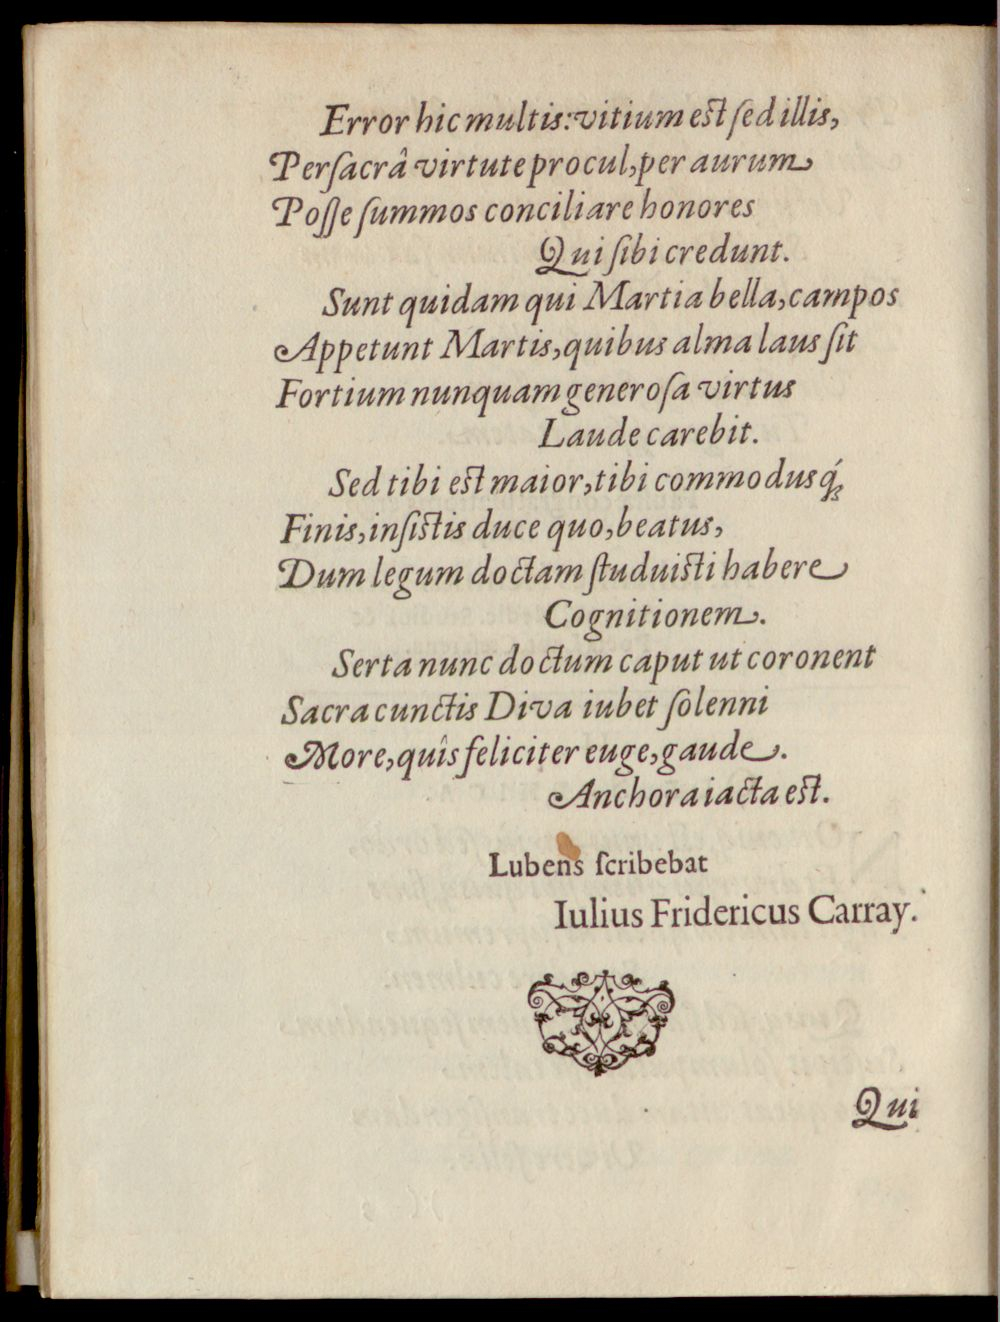 Error hic multis: vitium est ſed illis,
Perſacrâ virtute procul, per aurum
Poſſe ſummos conciliare honores
Qui ſibi credunt.
Sunt quidam qui Martia bella, campos
Appetunt Martis, quibus alma laus ſit
Fortium nunquam generoſa virtus
Laude carebit.
Sed tibi est maior, tibi commodusq́;
Finis, inſistis duce quo, beatus,
Dum legum doctam ſtuduisti habere
Cognitionem.
Serta nunc doctum caput ut coronent
Sacra cunctis Diva iubet ſolenni
More, quîs feliciter euge, gaude.
Anchora iacta est.
Lubens ſcribebat
Iulius Fridericus Carray.
Qui